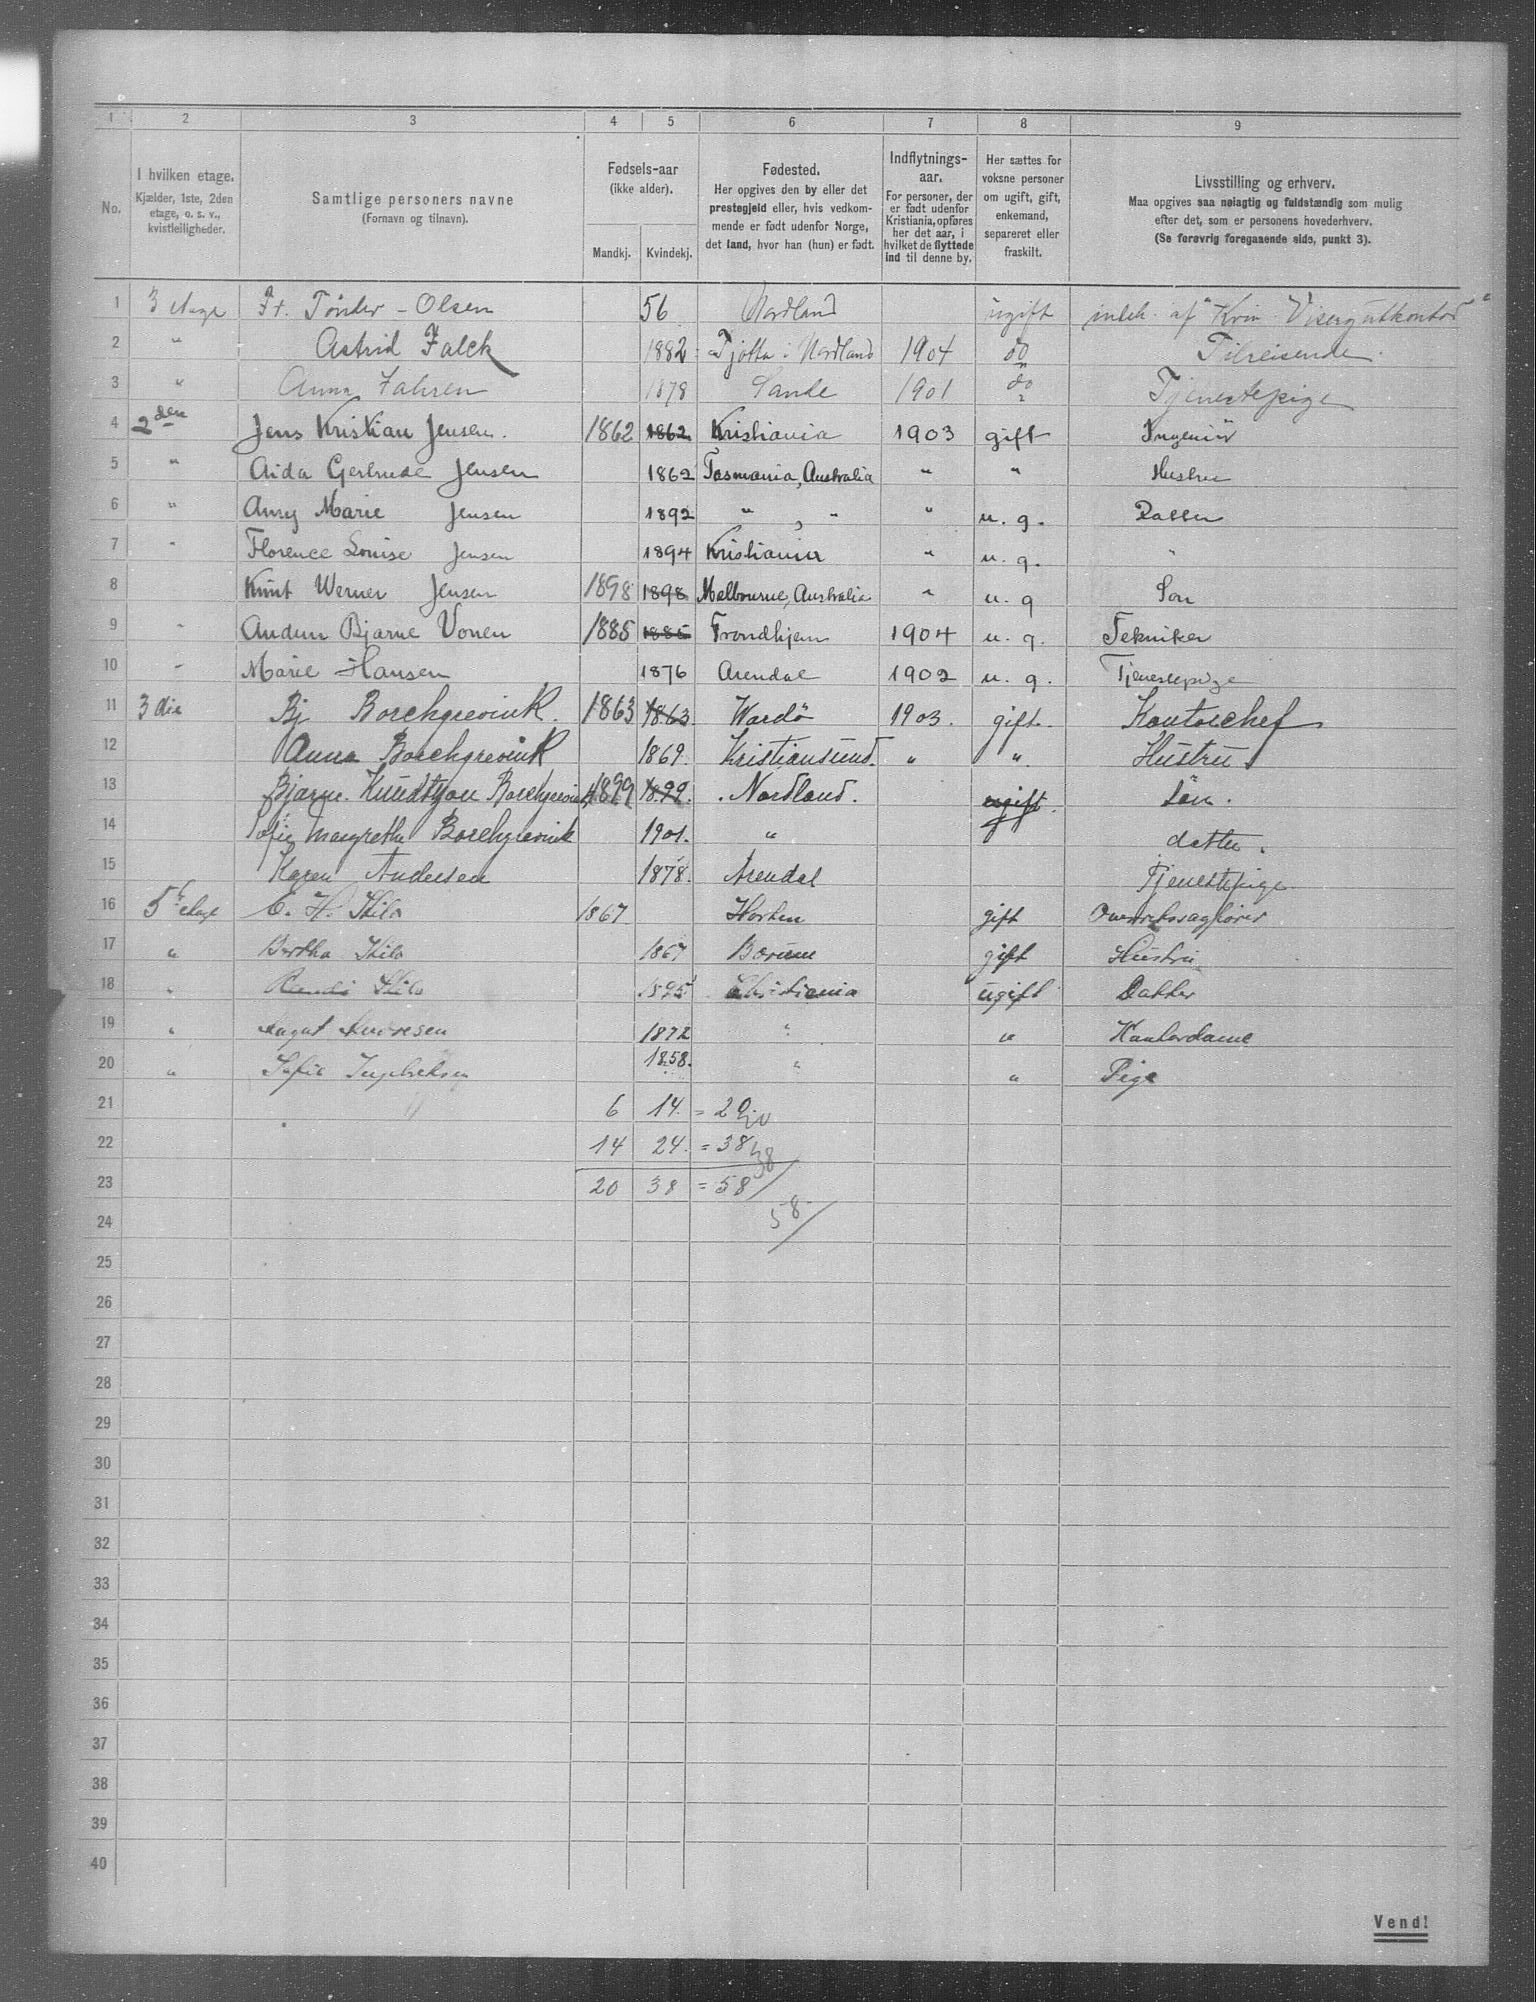 1 2 3 4 5 6 7 8 9
No.
I hvilken etage.
Kjælder, 1ste, 2den
etage, o. s. v.,
kvistleiligheder.
Samtlige personers navne
(Fornavn og tilnavn).
Fødsels-aar
(ikke alder).
Mandkj. Kvindekj.
Fødested.
Her opgives den by eller det
prestegjeld eller, hvis vedkom-
mende er født udenfor Norge,
det land, hvor han (hun) er født.
Indflytnings-
aar.
For personer, der
er født udenfor
Kristiania, opføres
her det aar, i
hvilket de flyttede
ind til denne by.
Her sættes for
voksne personer
om ugift, gift,
enkemand,
separeret eller
fraskilt.
Livsstilling og erhverv.
Maa opgives saa nøiagtig og fuldstændig som mulig
efter det, som er personens hovederhverv.
(Se forøvrig foregaaende side, punkt 3).
1 3 etage Fr. Tønder-Olsen 56 Nordland ugift indeh. af "Kvin Visergutkontor"
2 " Astrid Falck 1882 Tjøtta i Nordland 1904 do Tilreisende.
3 " Anna 1878 Sande 1901 do Tjenestepige
4 2den Jens Kristian Jensen. 1862 1862 Kristiania 1903 gift Ingeniør
5 " Aida Gertrude Jensen 1862 Tasmania, Australia " " Hustru
6 " Anny Marie Jensen 1892 " , " " u. g. Datter
7 " Florence Louise Jensen 1894 Kristiania " u. g. "
8 Knut Werner Jensen 1898 1898 Melbourne, Australia " u. g Søn
9 " Audun Bjarne Vonen 1885 1885 Trondhjem 1904 u. g. Tekniker
10 " Marie Hansen 1876 Arendal 1902 u. g. Tjenestepige
11 3die Bj Borchgrevink. 1863 1863 Wardø 1903. gift. Kontorchef
12 Anna Borchgrevink 1869. Kristiansund. " " Hustru
13 Bjarne Knudtzon Borchgrevink 1899 1899. Nordland. ugift. Søn.
14 Sofie Margrethe Borchgrevink 1901. " datter.
15 Karen Andersen 1878. Arendal Tjenestepige
16 5te etage C. H. 1867 Horten gift Overretssagfører
17 " Bertha 1867 Bærum gift Hustru
18 " 1895 Christiania ugift Datter
19 " Andresen 1872 " " Kontordame
20 " Sofie 1858. " " Pige
21 6 14. = 20
22 14 24. = 38 38
23 20 38 = 58
24 58
25
26
27
28
29
30
31
32
33
34
35
36
37
38
39
40
Vend!